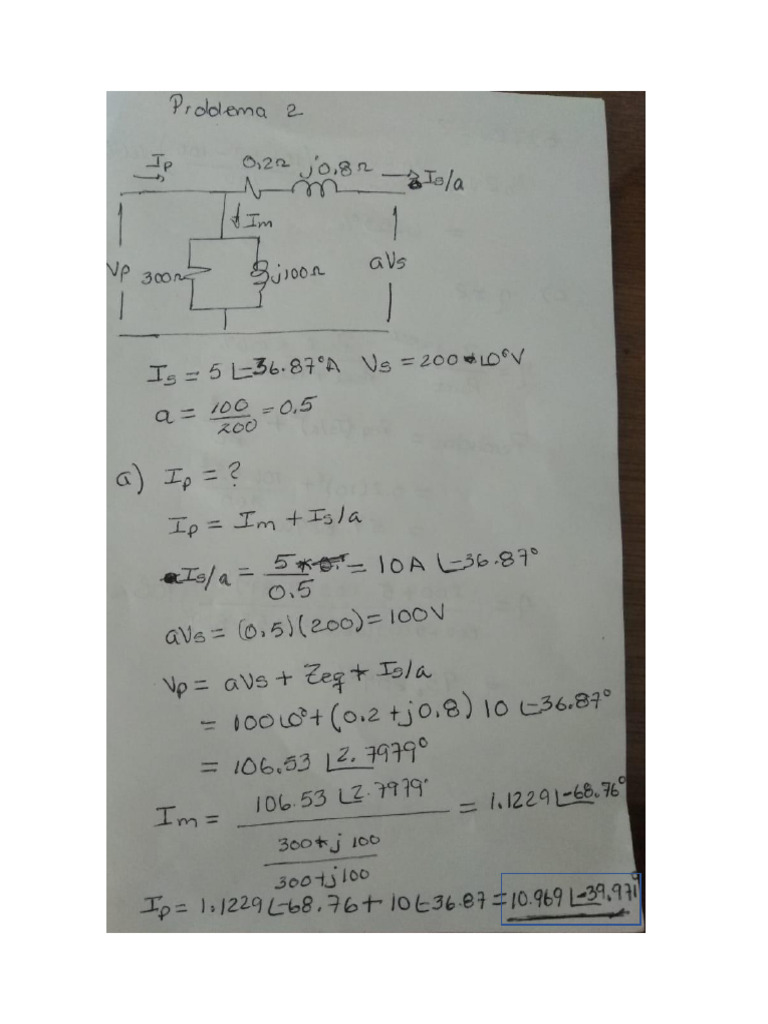 Problema 2
Ip
0.2Ω j0.8Ω → Is/a
Im
Vp 300Ω j100Ω aVs
Is = 5∠-36.87°A Vs = 200∠0°V
a = 100/200 = 0.5
a) Ip = ?
Ip = Im + Is/a
Is/a = 5/0.5 = 10A∠-36.87°
aVs = (0.5)(200) = 100V
Vp = aVs + Zeq * Is/a
= 100∠0° + (0.2 + j0.8) 10∠-36.87°
= 106.53∠2.7979°
Im = 106.53∠2.7979° / (300*j100 / 300+j100) = 1.1229∠-68.76°
Ip = 1.1229∠-68.76 + 10∠-36.87 = 10.969∠-39.971°